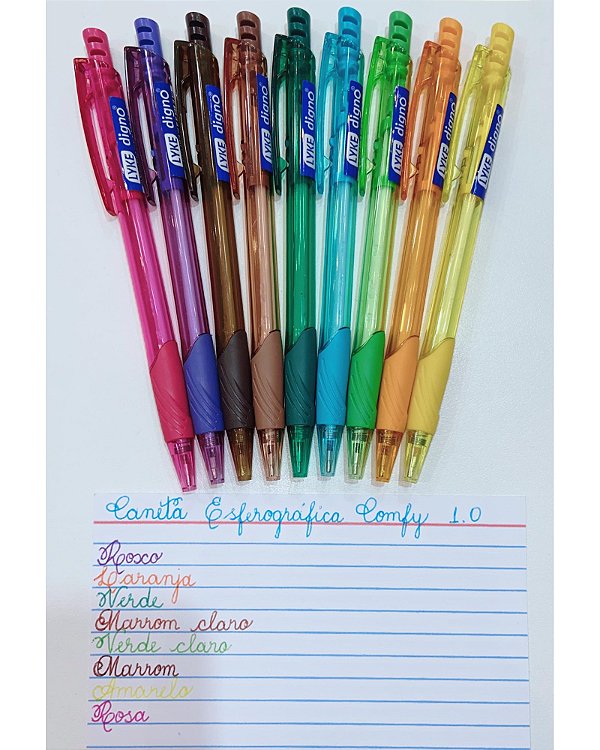 LYKE digno
LYKE digno
LYKE digno
LYKE digno
LYKE digno
LYKE digno
LYKE digno
LYKE digno
LYKE digno
Caneta Esferográfica Comfy 1.0
Roxo
Laranja
Verde
Marrom claro
Verde claro
Marrom
Amarelo
Rosa